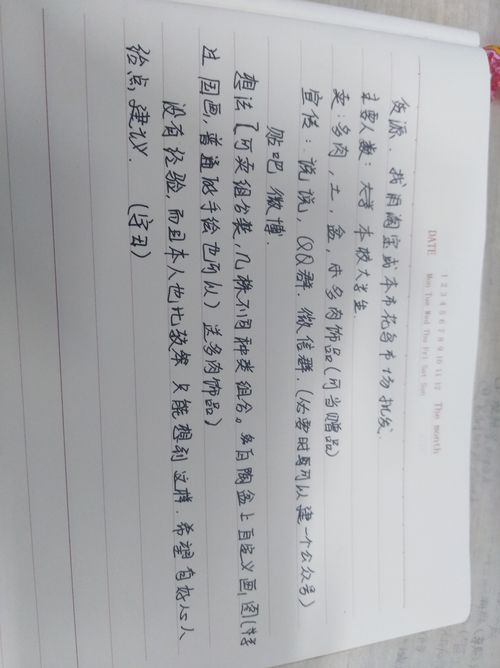 DATE
1 2 3 4 5 6 7 8 9 10 11 12 The month
Mon Tue Wed Thu Fri Sat Sun
货源. 找用淘宝或本市花鸟市场批发
主要人数: 大学 本校大学生.
卖: 多肉, 土, 盆, 小多肉饰品(可当赠品)
宣传: 说说, QQ群. 微信群. (必要时可以建一个公众号)
贴吧 微博.
想法【可卖组合装, 几株不同种类组合。白陶盆上自定义画, 图(
过 因画, 普通的手绘也可以) 送多肉饰品)
没有经验, 而且本人也比较笨 只能想到这样. 希望有好心人
给点建议. (字丑)